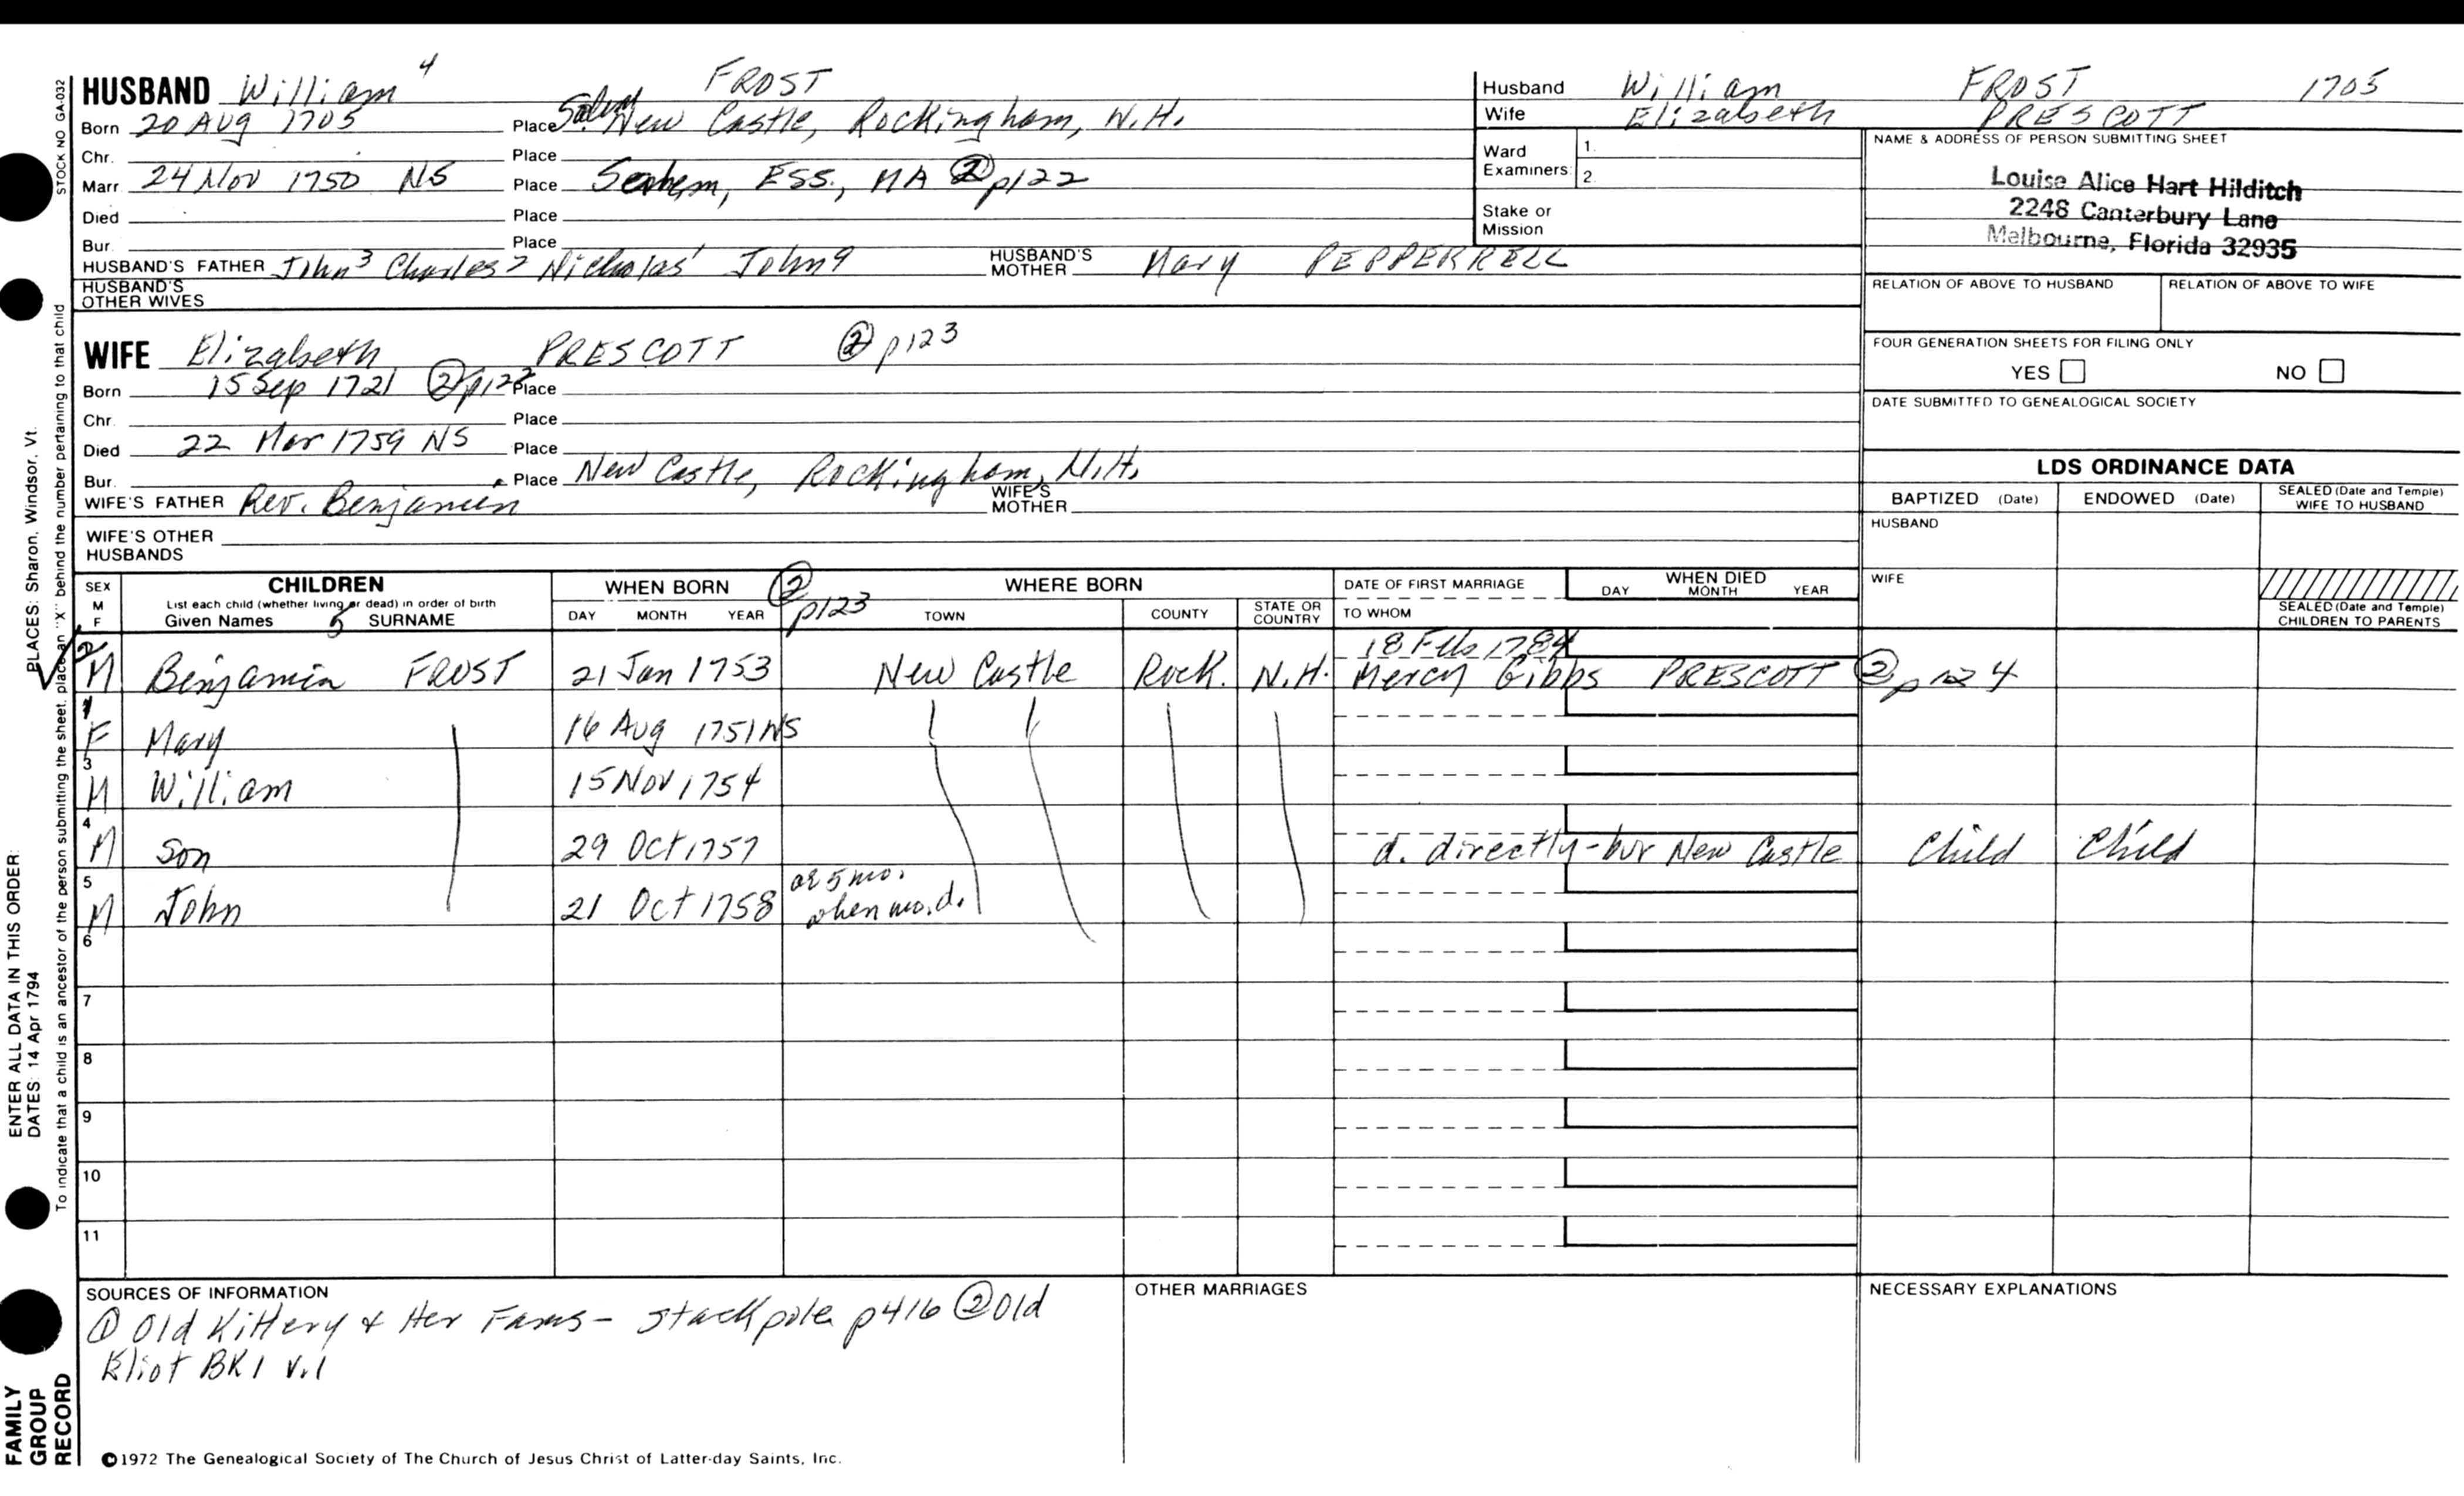 HUSBAND William 4 FROST
Born 20 Aug 1705 Place New Castle, Rockingham, N.H.
Chr. Place
Marr. 24 Nov 1750 NS Place ESS., MA ② p122
Died Place
Bur. Place
HUSBAND'S FATHER John 3 Charles 2 Nicholas 1 John 9 HUSBAND'S MOTHER Mary PEPPERRELL
HUSBAND'S OTHER WIVES
WIFE Elizabeth PRESCOTT ② p123
Born 15 Sep 1721 ② Place
Chr. Place
Died 22 Mar 1759 NS Place
Bur. Place New Castle, Rockingham, N.H.
WIFE'S FATHER Rev. Benjamin WIFE'S MOTHER
WIFE'S OTHER HUSBANDS
Husband William FROST 1705
Wife Elizabeth PRESCOTT
Ward Examiners: 1. 2.
Stake or Mission
NAME & ADDRESS OF PERSON SUBMITTING SHEET
Louise Alice Hart Hilditch
2248 Canterbury Lane
Melbourne, Florida 32935
RELATION OF ABOVE TO HUSBAND RELATION OF ABOVE TO WIFE
FOUR GENERATION SHEETS FOR FILING ONLY
YES NO
DATE SUBMITTED TO GENEALOGICAL SOCIETY
LDS ORDINANCE DATA
BAPTIZED (Date) ENDOWED (Date) SEALED (Date and Temple) WIFE TO HUSBAND
HUSBAND
WIFE
SEALED (Date and Temple) CHILDREN TO PARENTS
SEX M F CHILDREN WHEN BORN ② p123 WHERE BORN DATE OF FIRST MARRIAGE WHEN DIED
List each child (whether living or dead) in order of birth
Given Names SURNAME DAY MONTH YEAR TOWN COUNTY STATE OR COUNTRY TO WHOM DAY MONTH YEAR
18 Feb 1784
2 M Benjamin FROST 21 Jan 1753 New Castle Rock. N.H. Mercy Gibbs PRESCOTT ② p 124
1 F Mary 16 Aug 1751 NS
3 M William 15 Nov 1754
4 M Son 29 Oct 1757 d. directly - bur New Castle Child Child
5 M John 21 Oct 1758 ae 5 mo. when mo. d.
6
7
8
9
10
11
SOURCES OF INFORMATION
① Old Kittery & Her Fams - Stackpole p416 ② Old
Eliot BK 1 v.1
OTHER MARRIAGES
NECESSARY EXPLANATIONS
©1972 The Genealogical Society of The Church of Jesus Christ of Latter-day Saints, Inc.
STOCK NO GA-032
To indicate that a child is an ancestor of the person submitting the sheet, place an "X" behind the number pertaining to that child
PLACES: Sharon, Windsor, Vt.
ENTER ALL DATA IN THIS ORDER:
DATES: 14 Apr 1794
FAMILY
GROUP
RECORD